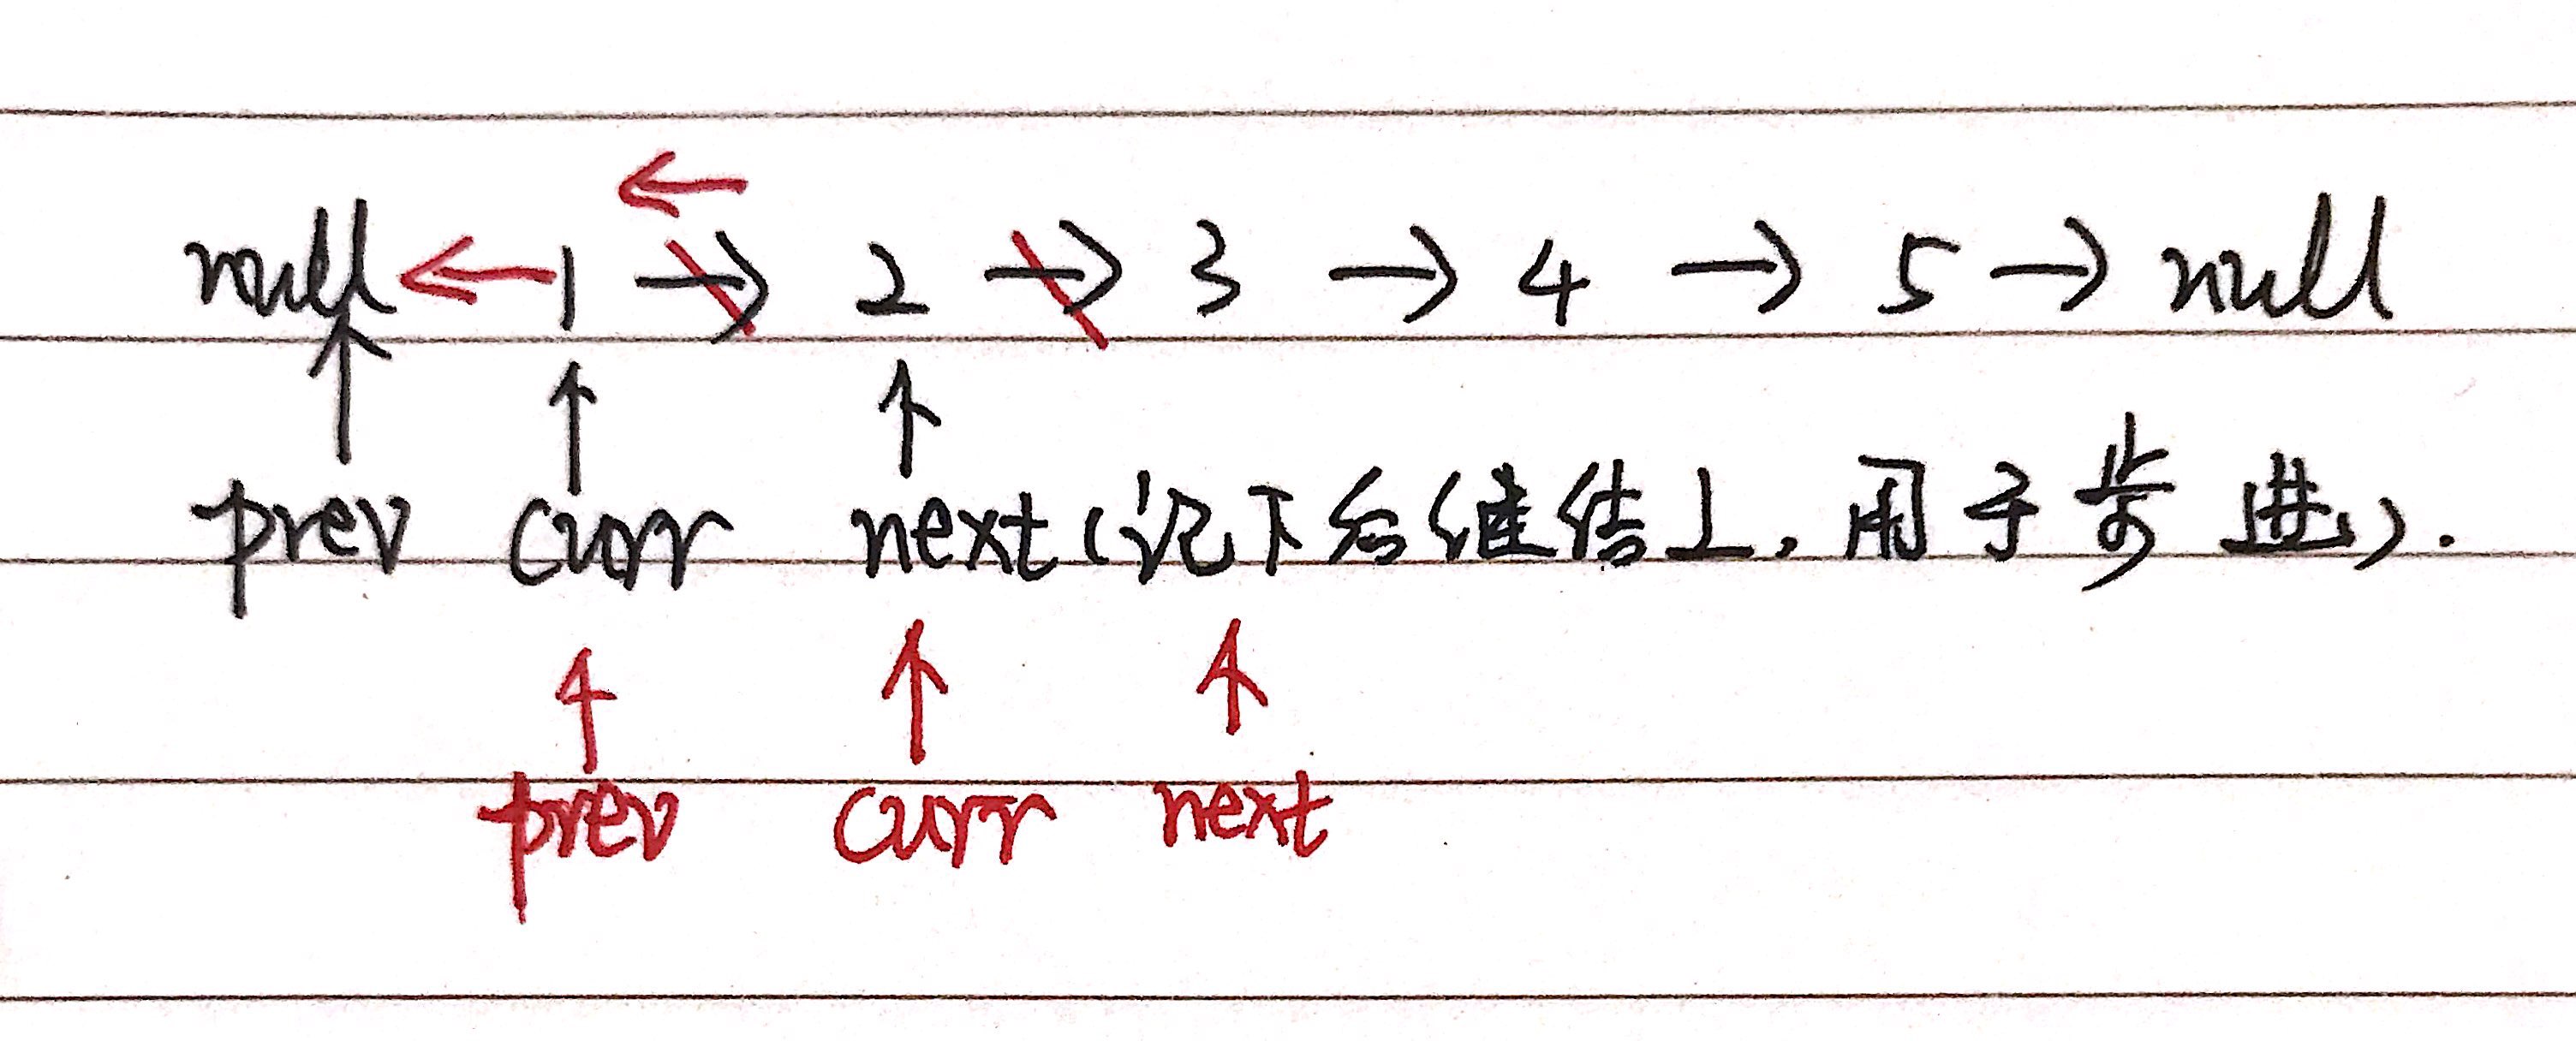 ←
null ← 1 → 2 → 3 → 4 → 5 → null
↑ ↑ ↑
prev curr next (记下后继结上, 用于步进).
↑ ↑ ↑
prev curr next